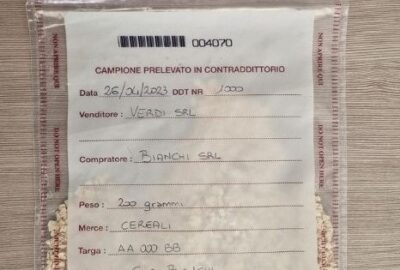 004070
CAMPIONE PRELEVATO IN CONTRADDITTORIO
Data 26/04/2023 DDT NR 1000
Venditore : VERDI SRL
Compratore : BIANCHI SRL
Peso : 200 grammi
Merce : CEREALI
Targa : AA 000 BB
NON APRIRE QUI
DO NOT OPEN HERE
NON APRIRE QUI
DO NOT OPEN HERE